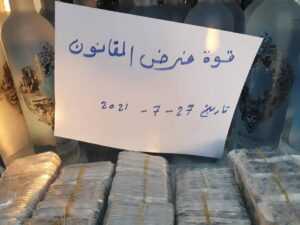 قوة فرض القانون
تاريخ 27-7-2021